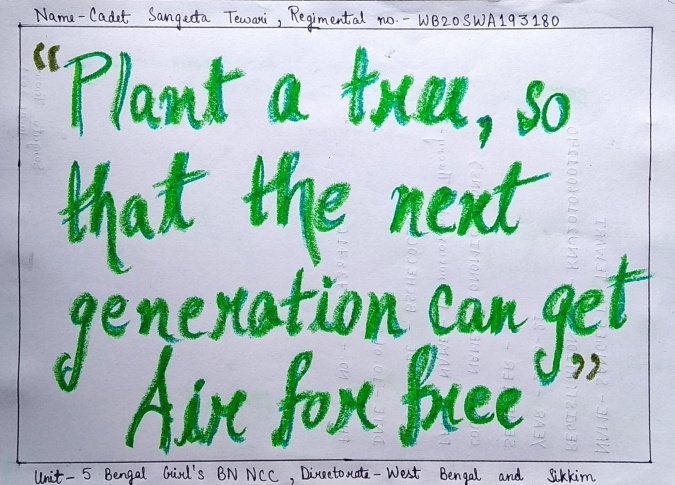 Name-Cadet Sangeeta Tewari, Regimental no.- WB20SWA193180
“Plant a tree, so
that the next
generation can get
Air for free”
Unit- 5 Bengal Girl's BN NCC, Directorate- West Bengal and Sikkim